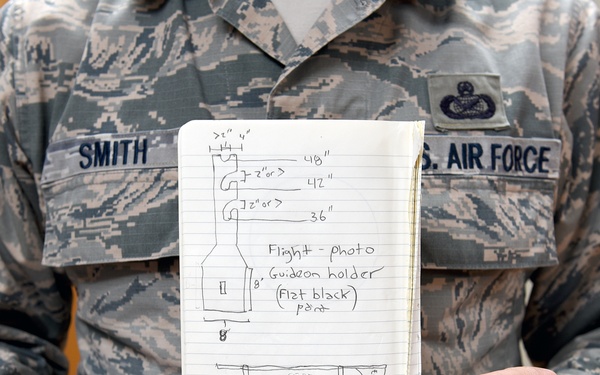 SMITH
S. AIR FORCE
>2" 4"
48"
2" or >
42"
2" or >
36"
Flight - photo
Guideon holder
(Flat black)
paint
8"
8